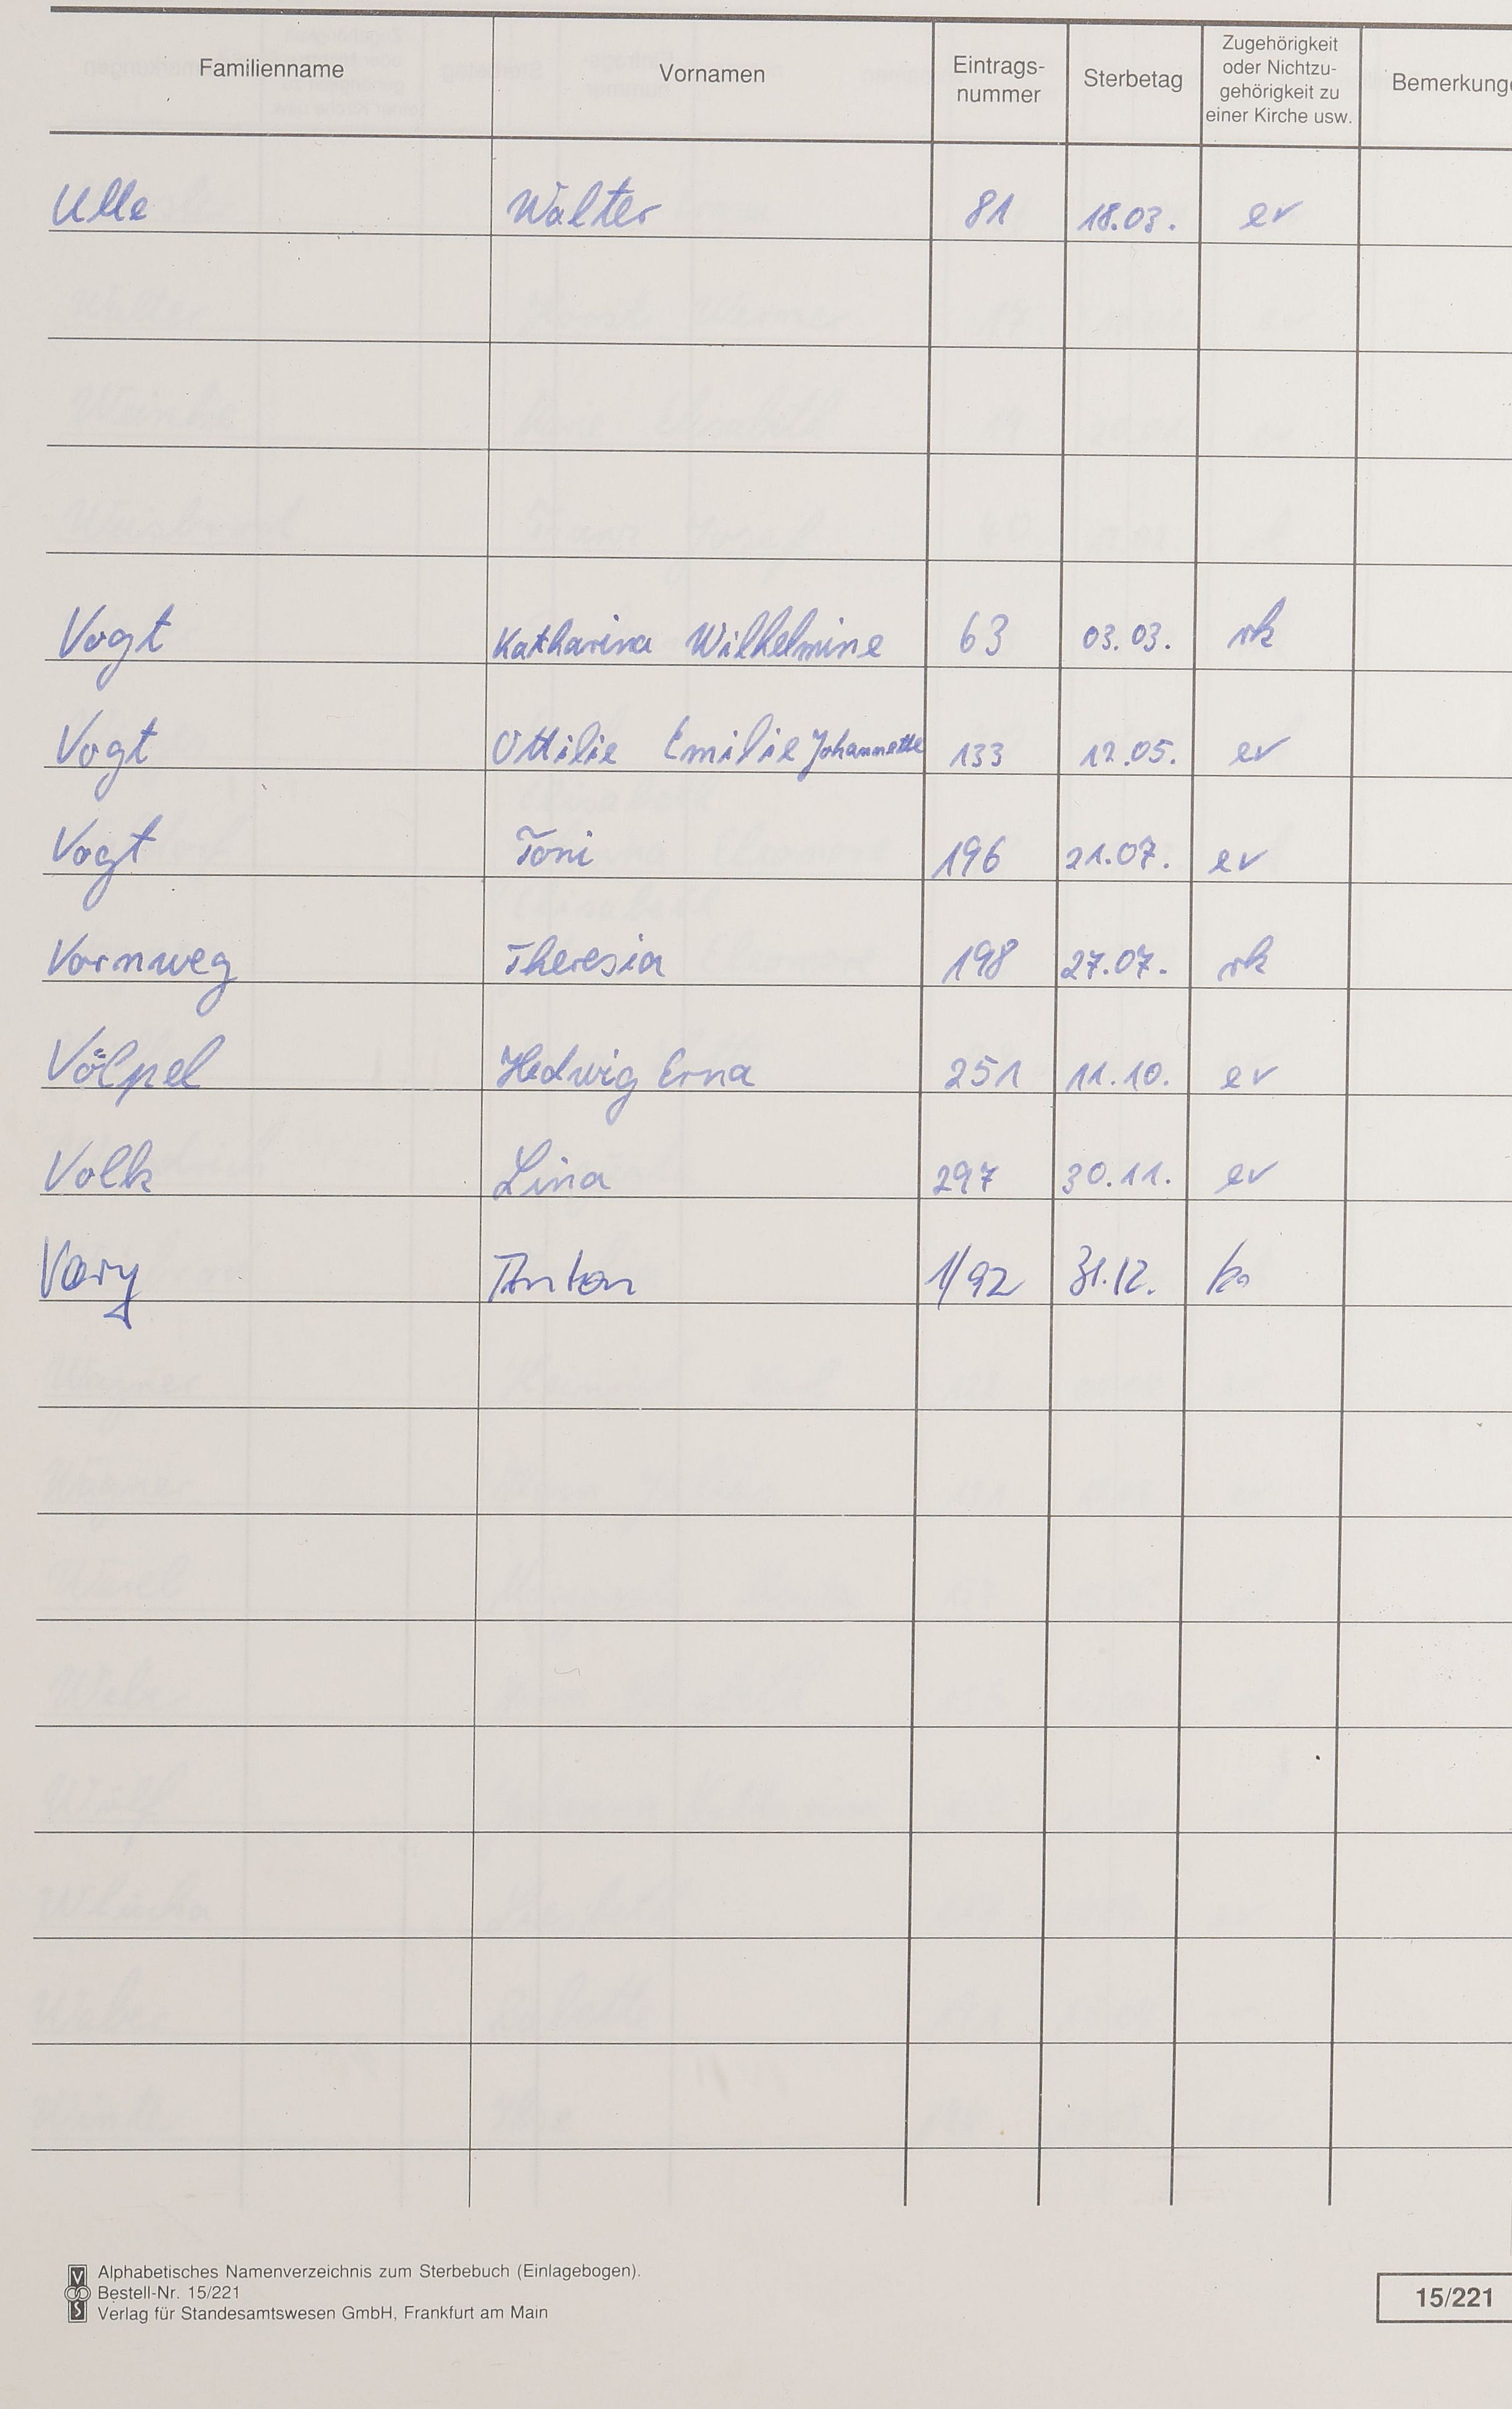 Familienname Vornamen Eintrags-nummer Sterbetag Zugehörigkeit oder Nichtzu-gehörigkeit zu einer Kirche usw. Bemerkung
Ulle Walter 81 18.03. ev
Vogt Katharina Wilhelmine 63 03.03. rk
Vogt Ottilie Emilie Johannette 133 12.05. ev
Vogt Toni 196 21.07. ev
Vornweg Theresia 198 27.07. rk
Völpel Hedwig Erna 251 11.10. ev
Volk Lina 297 30.11. ev
Vary Anton 1/92 31.12.
Alphabetisches Namenverzeichnis zum Sterbebuch (Einlagebogen).
Bestell-Nr. 15/221
Verlag für Standesamtswesen GmbH, Frankfurt am Main
15/221